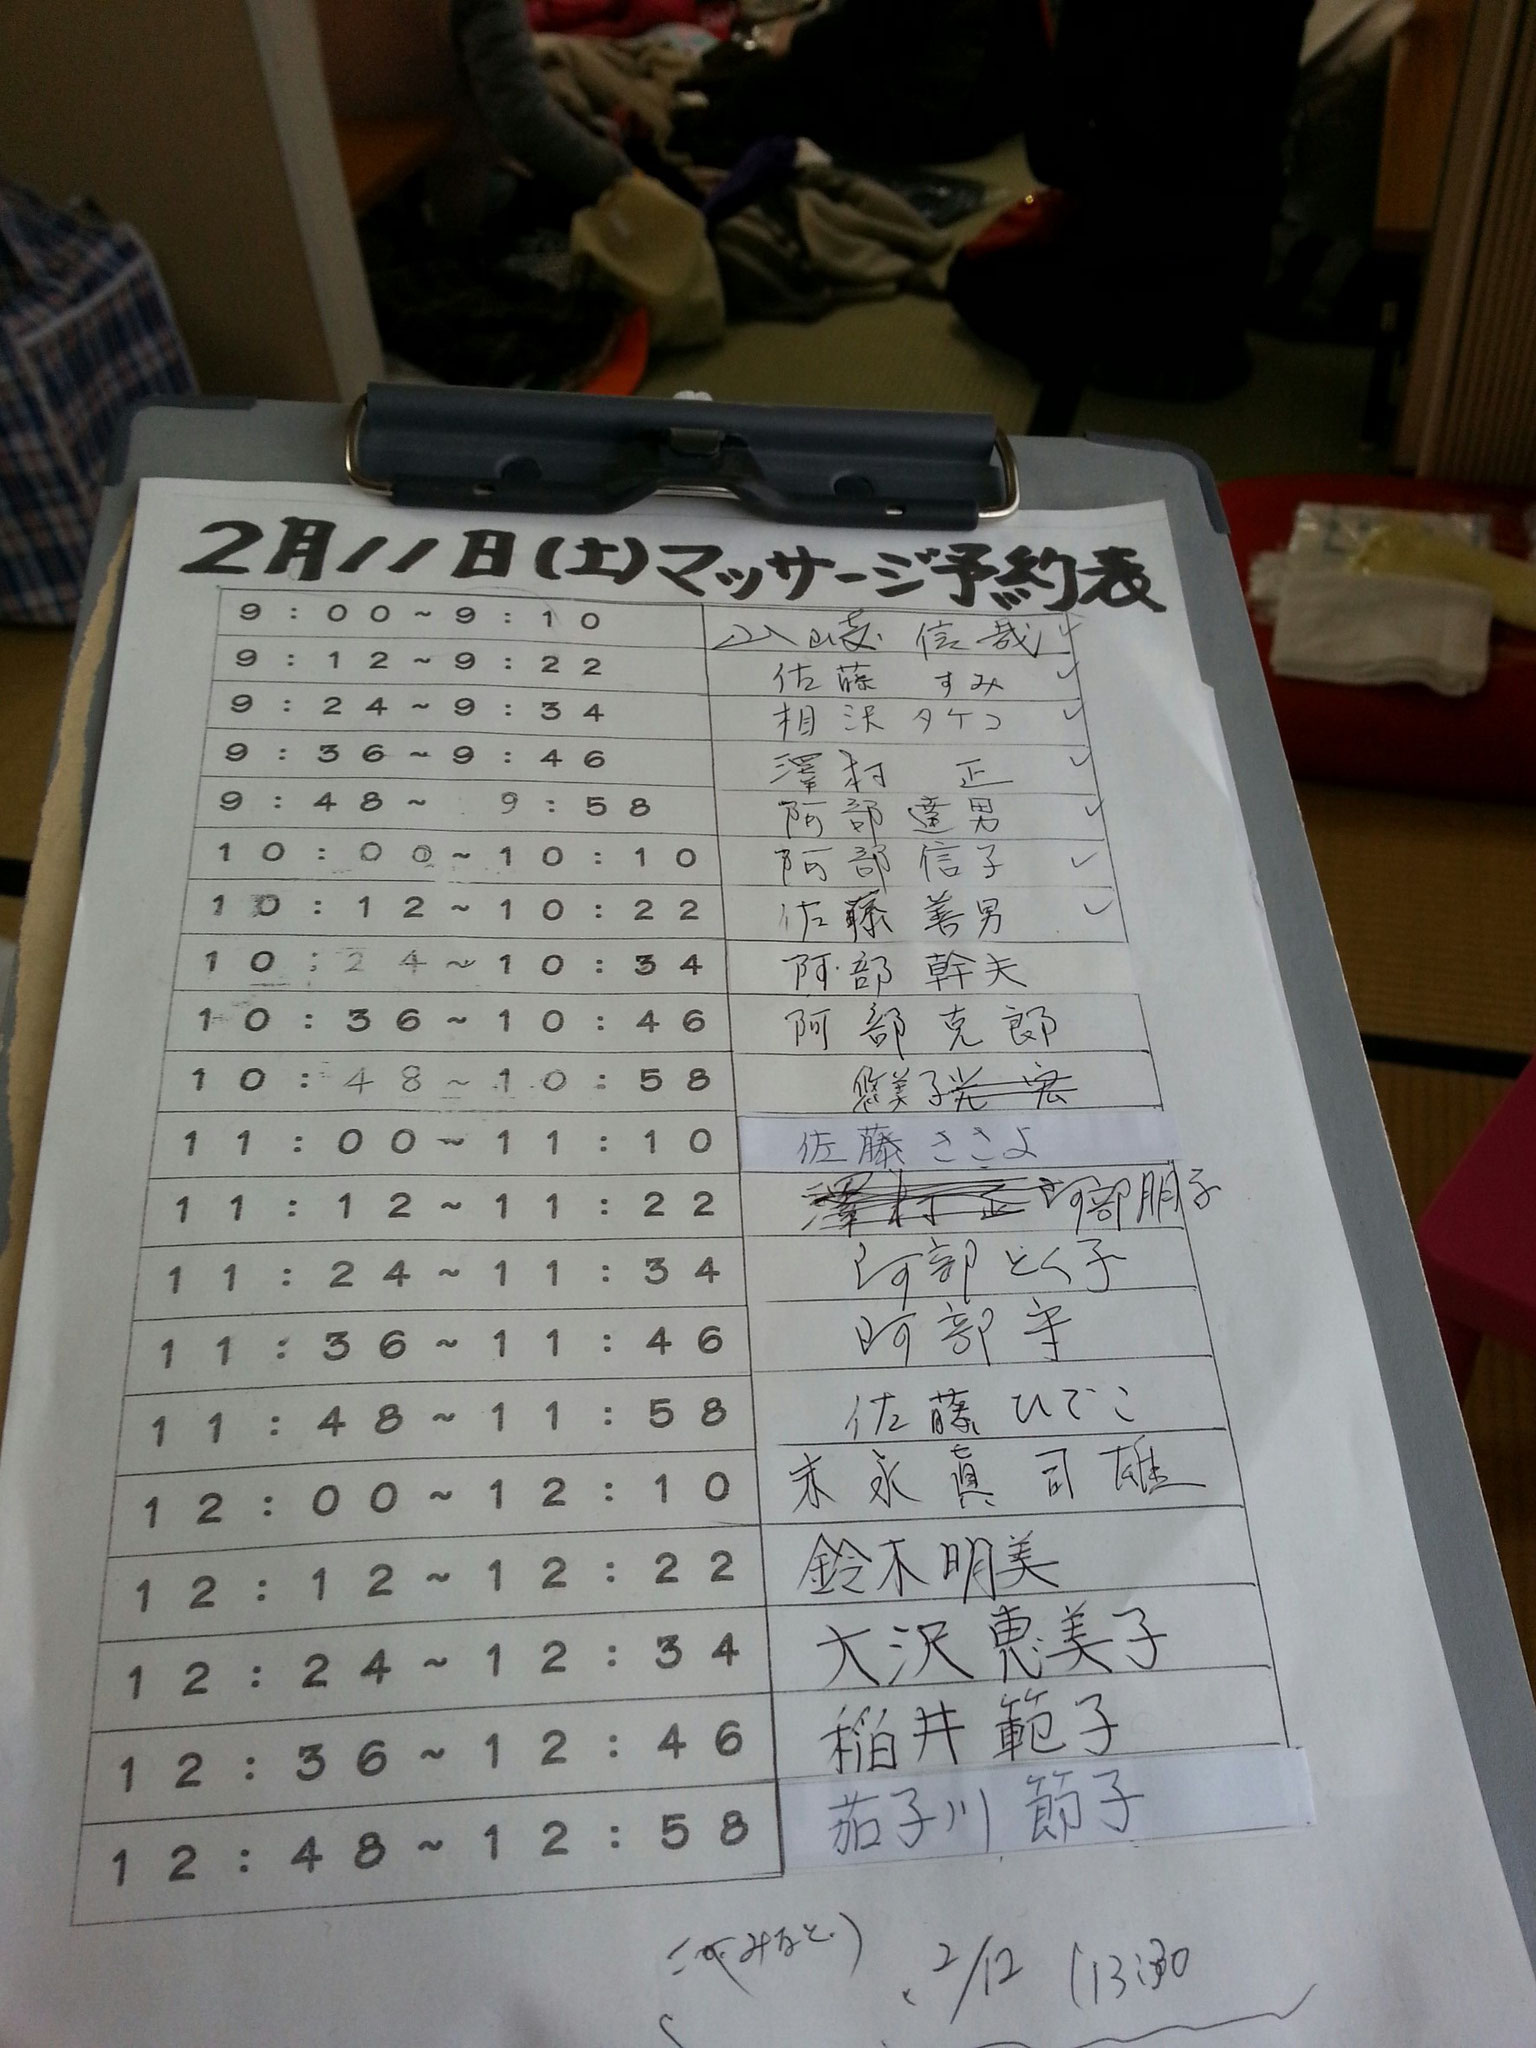 2月11日(土)マッサージ予約表
9:00~9:10 山崎 信哉 ✓
9:12~9:22 佐藤 すみ ✓
9:24~9:34 相沢 タケコ ✓
9:36~9:46 澤村 正 ✓
9:48~ 9:58 阿部 達男 ✓
10:00~10:10 阿部 信子 ✓
10:12~10:22 佐藤 善男 ✓
10:24~10:34 阿部 幹夫
10:36~10:46 阿部 克郎
10:48~10:58 悠美子
11:00~11:10 佐藤 ききよ
11:12~11:22 澤村 正 阿部朋子
11:24~11:34 阿部 とく子
11:36~11:46 阿部 守
11:48~11:58 佐藤 ひでこ
12:00~12:10 末永 眞司 雄
12:12~12:22 鈴木明美
12:24~12:34 大沢恵美子
12:36~12:46 稲井 範子
12:48~12:58 茄子川 節子
みなと)
2/12 (13:30